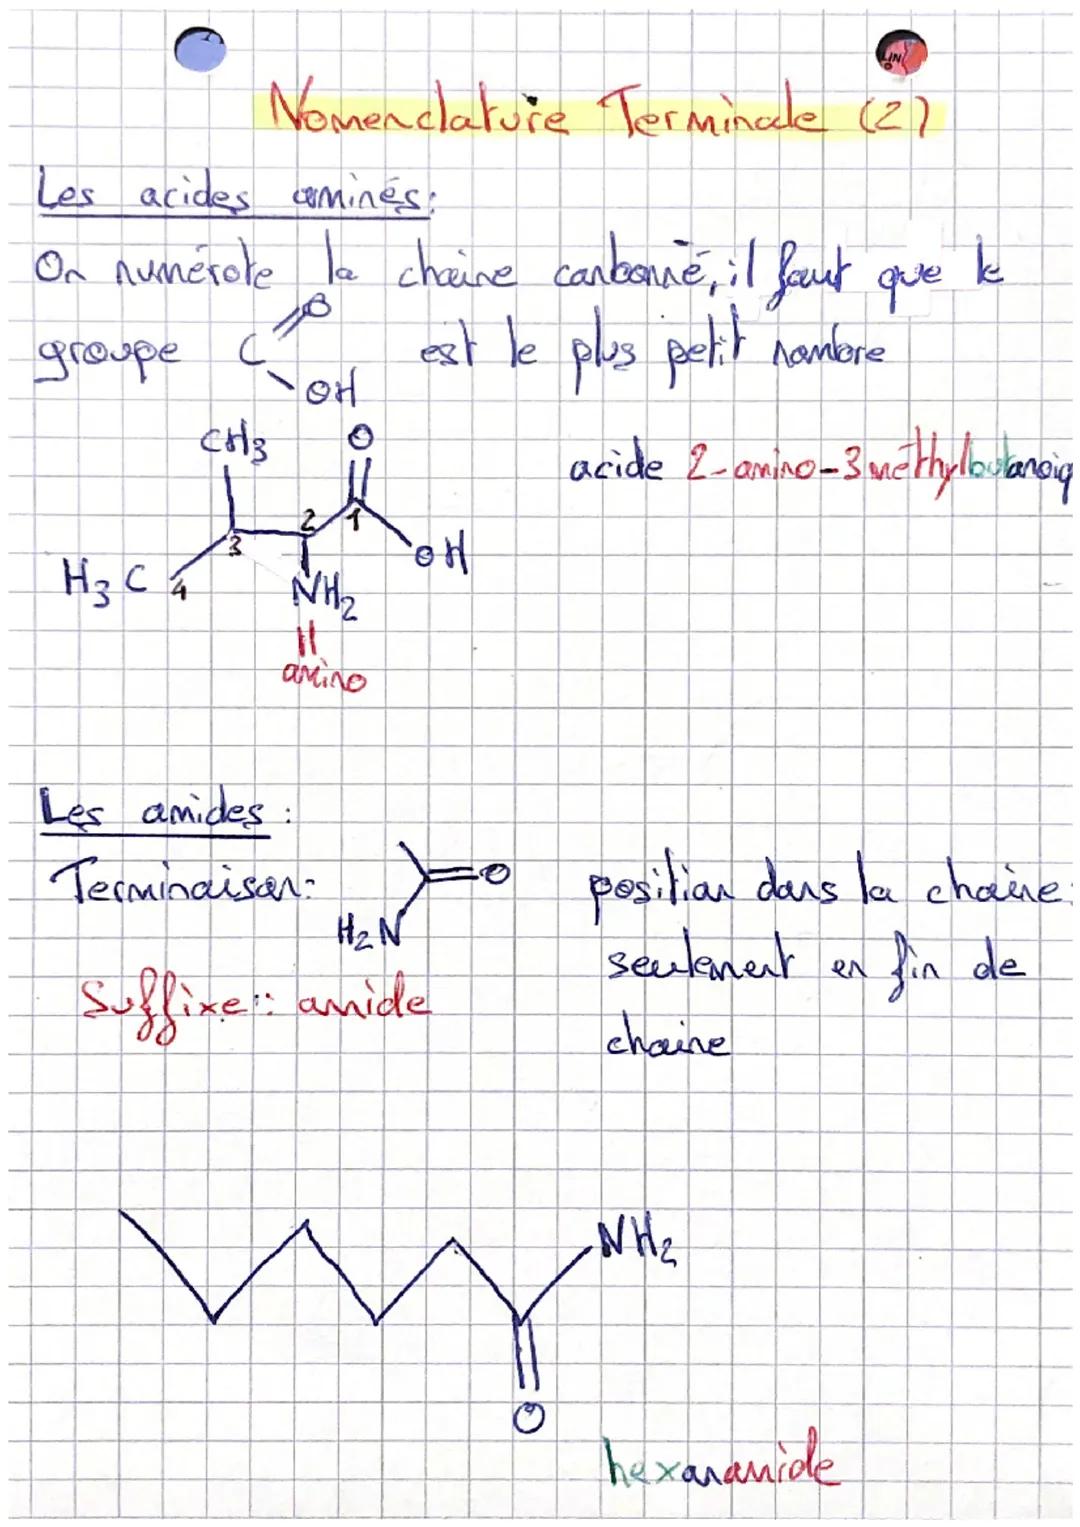 Nomenclature Terminale (2)
Les acides aminés:
On numérote la chaine carbonné, il faut que le
groupe C O OH est le plus petit nombre
CH3 O
acide 2-amino-3methylbutanoiq
3 2 1 OH
H3C 4 NH2
amino
Les amides :
Terminaison: O position dans la chaine:
H2N seulement en fin de
Suffixe: amide
chaine
NH2
O
hexanamide